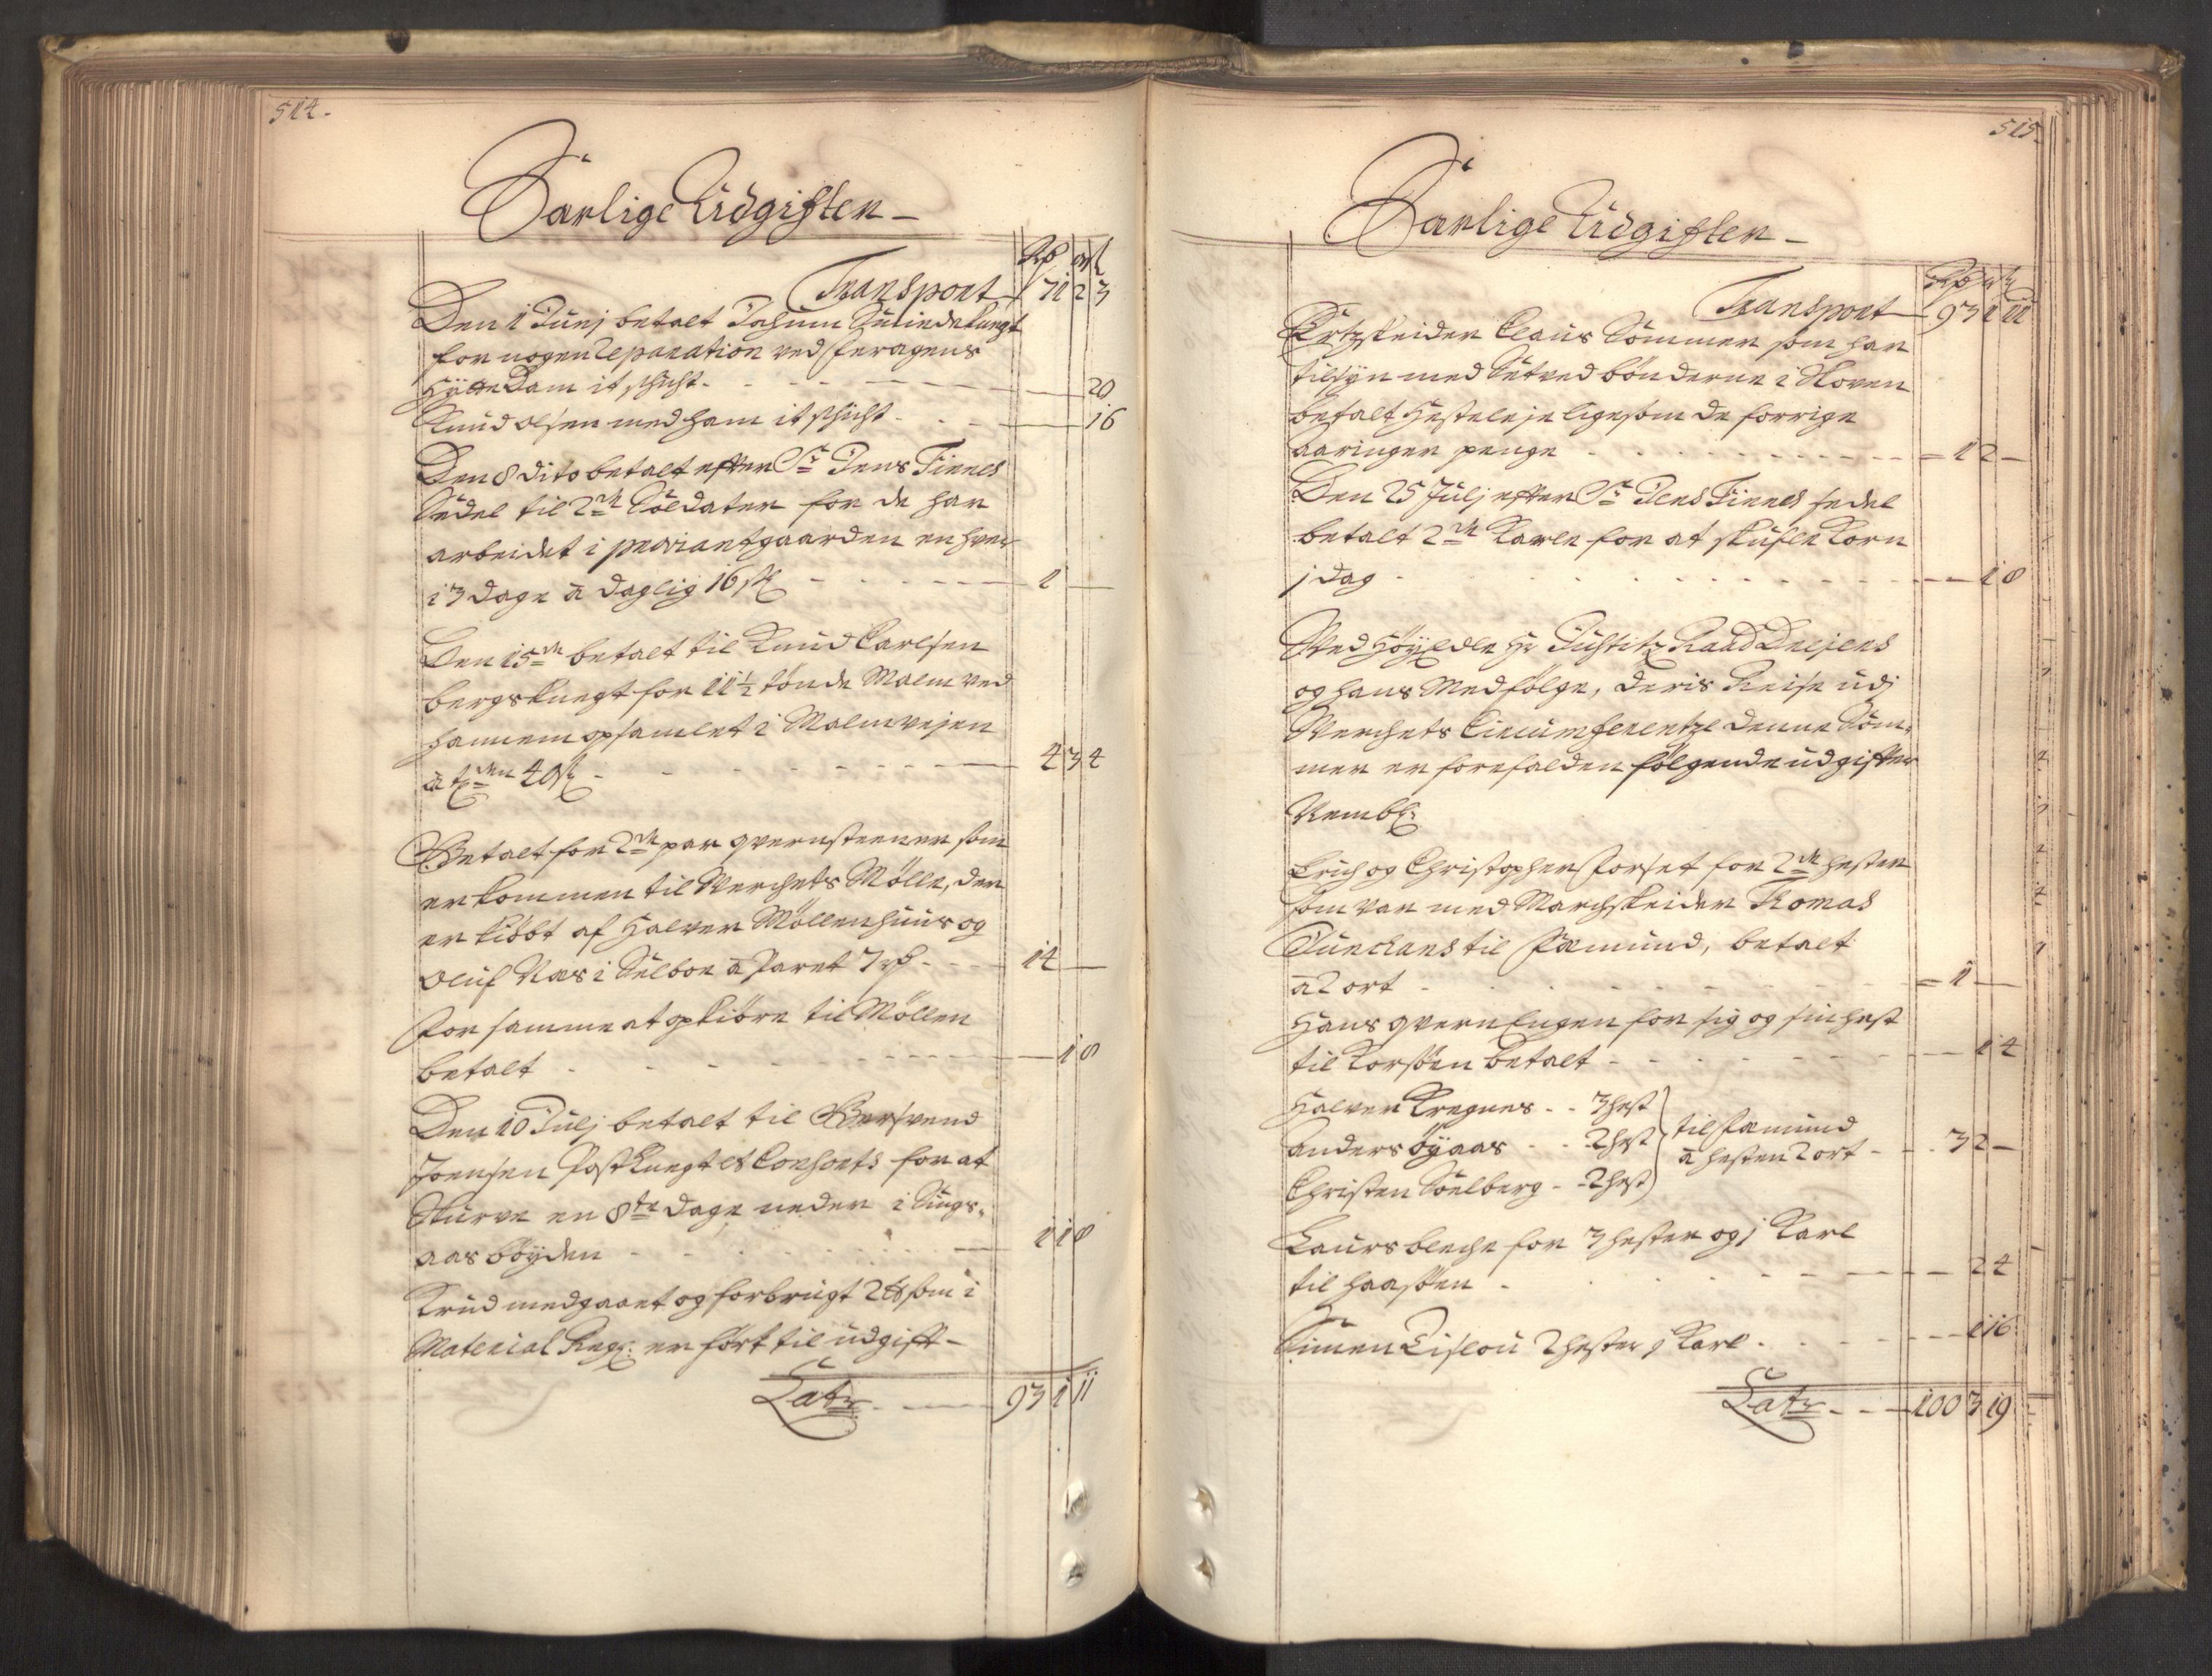 514.
Særlige Udgifter
Rdr ort s
Transport 71 2 3
Den 1 Junj betalt Jochum
for nogen Reparation ved Feragens
Hytte Dam it schicht - 20
Knud olsen med ham it schicht - 16
Den 8 dito betalt efter Sr Jens Finnes
Sedel til 2de Soldater for de har
arbeidet i proviantgaarden en hver
i 3 dage a daglig 16 s - 1
Den 15de betalt til Knud Carlsen
bergsknegt for 11½ tønde Malm ved
hannem opsamlet i Malmvejen
a tønden 40 s - 4 3 4
Betalt for 2de par qvernsteener som
er kommen til Werchets Mølle, der
er kiøbt af Halver Møllenhuus og
Oluf Næs i Selboe a Paret 7 rdr - 14
For samme at opkiøre til Møllen
betalt - 1 8
Den 10 Julj betalt til Bersvend
Joensen Postknegt et Consorts for at
Skurve en 8te dage neder i Sings-
aas bøyden - 1 1 8
Krud medgaaet og forbrugt 2 ℔ som i
Material Regr: er ført til udgift -
Latr - 93 1 11
515.
Særlige Udgifter
Rdr ort s
Transport 93 1 11
Claus Sommer som har
tilsyn med Setved bønderne i Skoven
betalt Hesteleje ligesom de forrige
aaringer penge - 1 2 -
Den 25 Julj efter Sr Jens Finnes sedel
betalt 2de Karle for at skufle Korn
j dag - 1 8
Ved Høyædle Hr Justitz Raad Drejers
og hans Medfølge, deris Reise udj
Werchets Circumferentze denne Som-
mer er forefalden følgende udgifter
Nembl:
Erich og Christopher Forset for 2de hester
som var med Marchskeider Thomas
til Fæmund, betalt
a 2 ort - 1 -
Hans qvern Engen for sig og sin hest
til Korssøen betalt - 1 4
Halver Krognes - 3 hest
Anders øyaas - 2 hest
Christen Søelberg - 2 hest
til Fæmund
a hesten 2 ort - 3 2 -
Laurs bleche for 3 hester og j Karl
til Haasøen - 2 4
Simen Lislou 2 hester j Karl - 1 16
Latr - 100 3 19